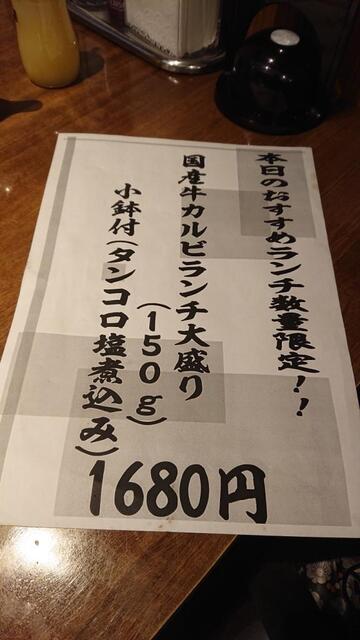 本日のおすすめランチ数量限定！！
国産牛カルビランチ大盛り
（１５０ｇ）
小鉢付（タンコロ塩煮込み）
1680円